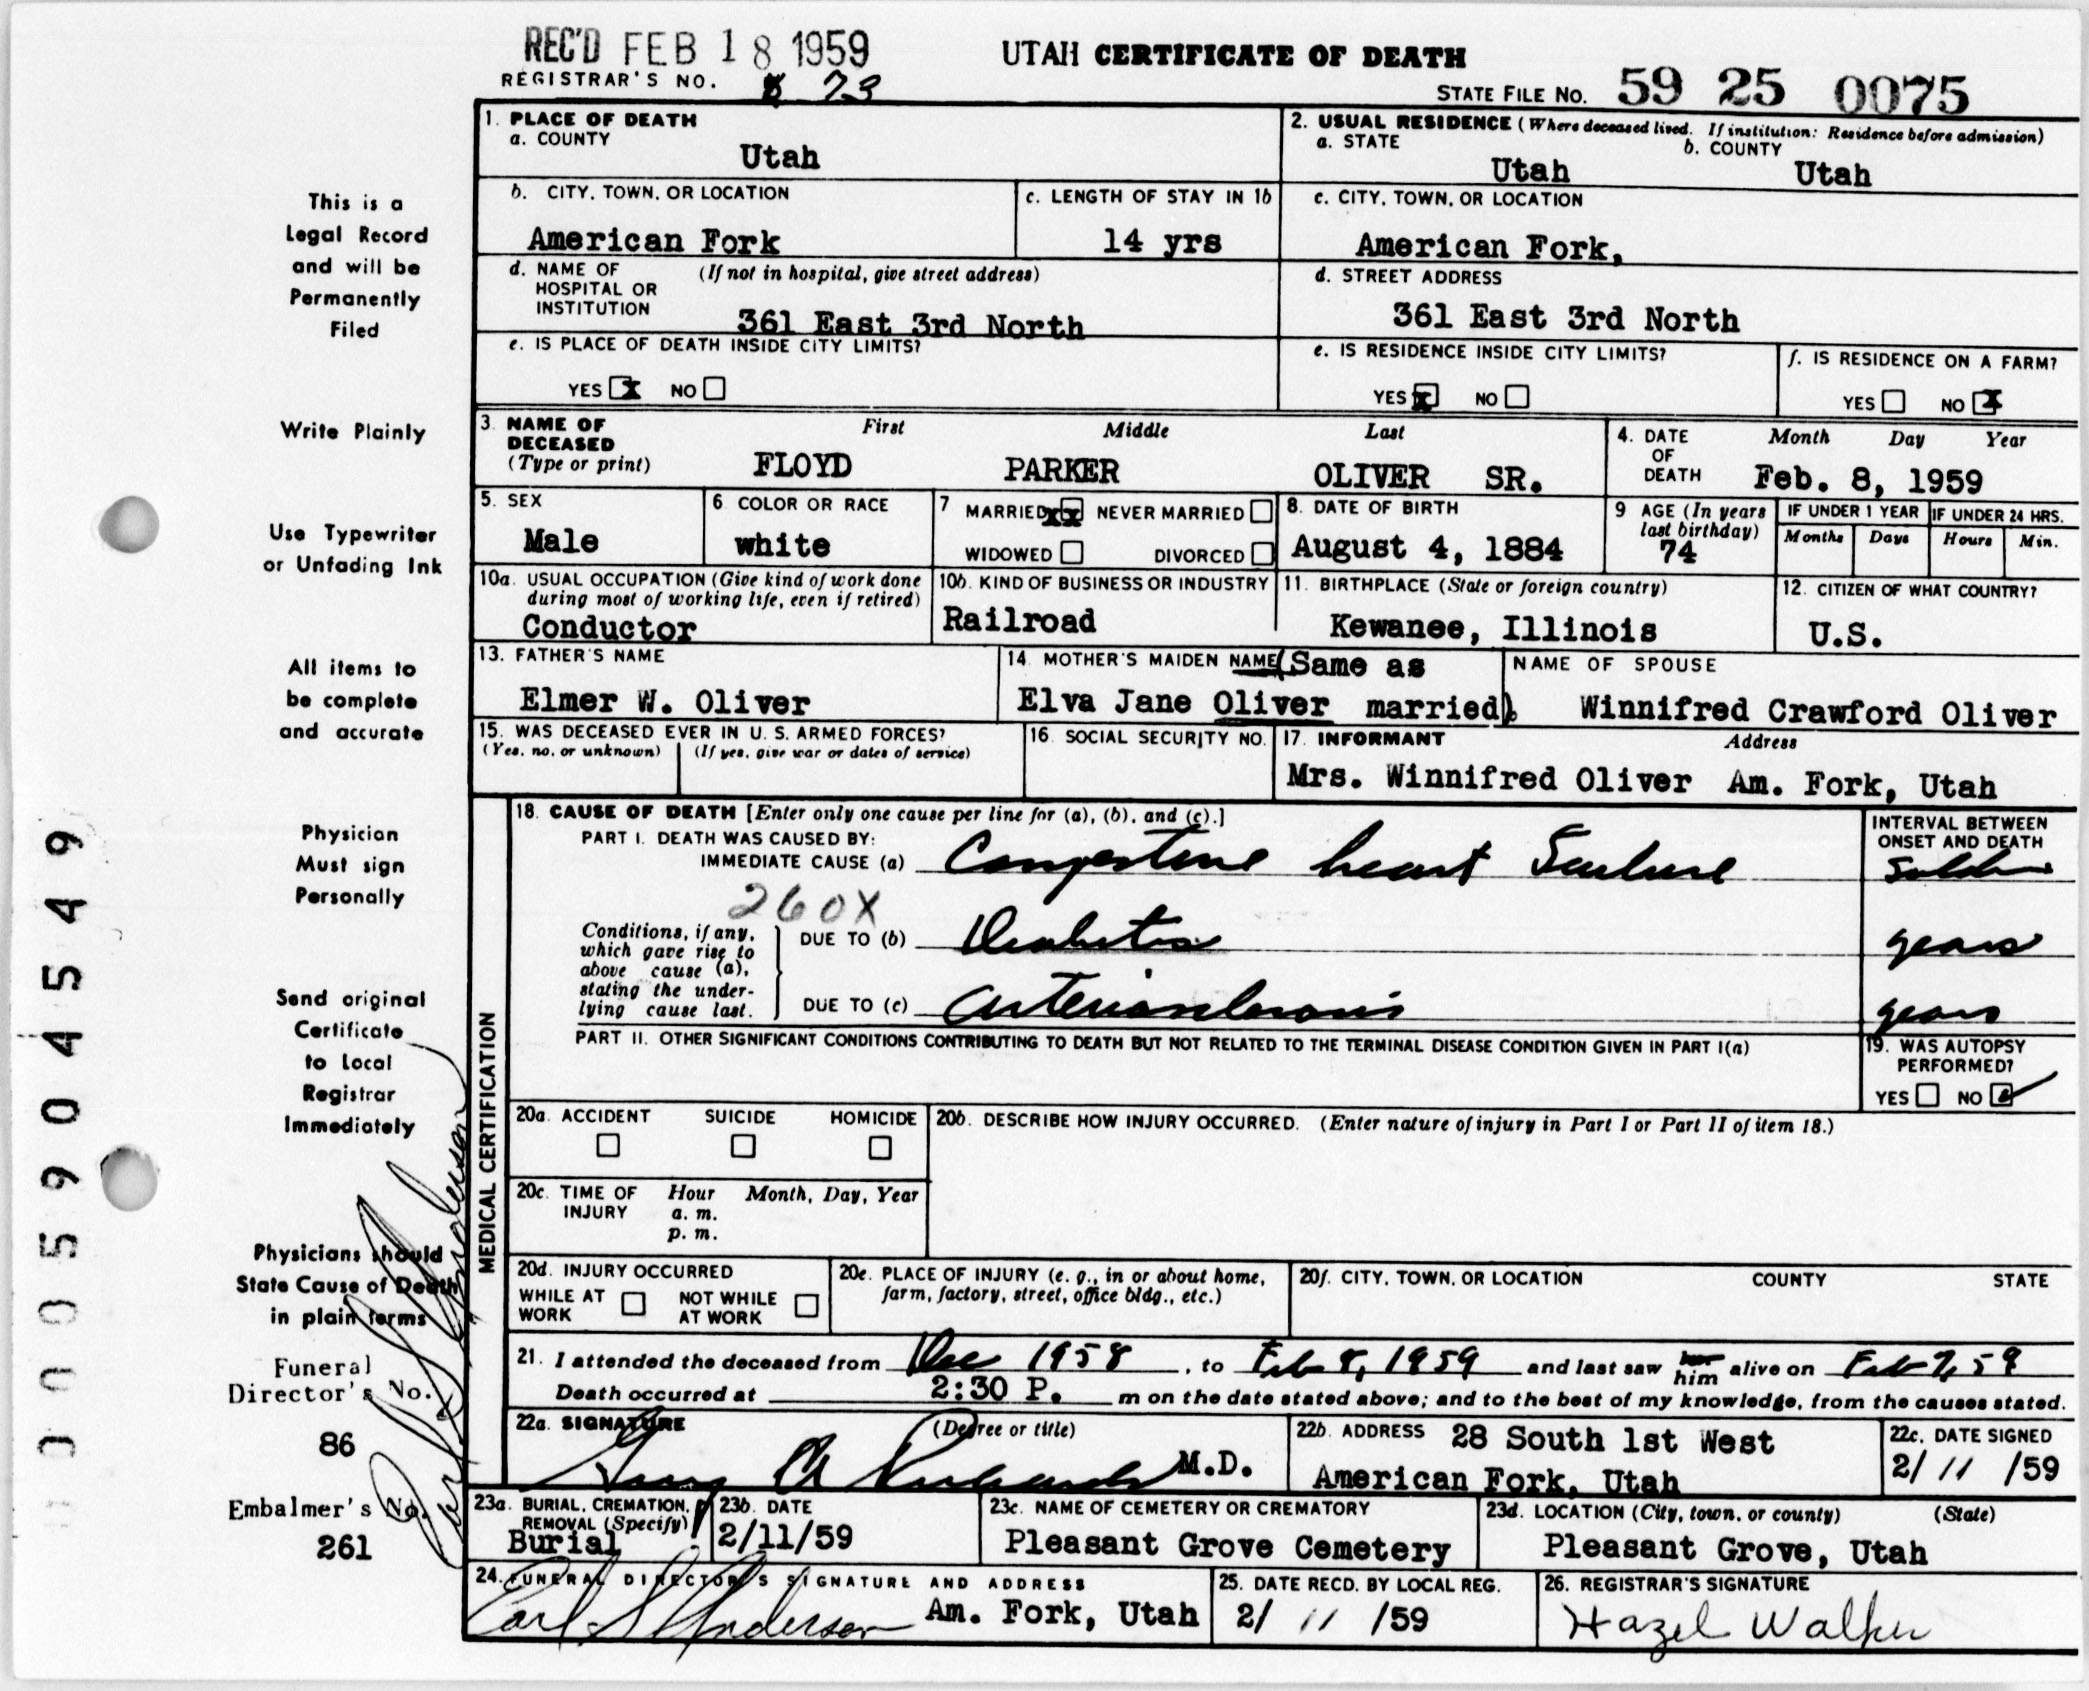 REC'D FEB 18 1959
UTAH CERTIFICATE OF DEATH
REGISTRAR'S NO. 73
STATE FILE NO. 59 25 0075
1. PLACE OF DEATH
a. COUNTY
Utah
2. USUAL RESIDENCE (Where deceased lived. If institution: Residence before admission)
a. STATE
Utah
b. COUNTY
Utah
b. CITY, TOWN, OR LOCATION
American Fork
c. LENGTH OF STAY IN 1b
14 yrs
c. CITY, TOWN, OR LOCATION
American Fork,
d. NAME OF HOSPITAL OR INSTITUTION
(If not in hospital, give street address)
361 East 3rd North
d. STREET ADDRESS
361 East 3rd North
e. IS PLACE OF DEATH INSIDE CITY LIMITS?
YES X NO
e. IS RESIDENCE INSIDE CITY LIMITS?
YES X NO
f. IS RESIDENCE ON A FARM?
YES NO X
3. NAME OF DECEASED
(Type or print)
First Middle Last
FLOYD PARKER OLIVER SR.
4. DATE OF DEATH
Month Day Year
Feb. 8, 1959
5. SEX
Male
6. COLOR OR RACE
white
7 MARRIED XX NEVER MARRIED
WIDOWED DIVORCED
8. DATE OF BIRTH
August 4, 1884
9 AGE (In years last birthday)
74
IF UNDER 1 YEAR
Months Days
IF UNDER 24 HRS.
Hours Min.
10a. USUAL OCCUPATION (Give kind of work done
during most of working life, even if retired)
Conductor
10b. KIND OF BUSINESS OR INDUSTRY
Railroad
11. BIRTHPLACE (State or foreign country)
Kewanee, Illinois
12. CITIZEN OF WHAT COUNTRY?
U.S.
13. FATHER'S NAME
Elmer W. Oliver
14. MOTHER'S MAIDEN NAME (Same as
Elva Jane Oliver married)
NAME OF SPOUSE
Winnifred Crawford Oliver
15. WAS DECEASED EVER IN U. S. ARMED FORCES?
(Yes, no, or unknown) (If yes, give war or dates of service)
16. SOCIAL SECURITY NO.
17. INFORMANT Address
Mrs. Winnifred Oliver Am. Fork, Utah
MEDICAL CERTIFICATION
18. CAUSE OF DEATH [Enter only one cause per line for (a), (b), and (c).]
PART I. DEATH WAS CAUSED BY:
IMMEDIATE CAUSE (a) Congestive heart Failure
INTERVAL BETWEEN
ONSET AND DEATH
260X
Conditions, if any,
which gave rise to
above cause (a),
stating the under-
lying cause last.
DUE TO (b) Diabetes
years
DUE TO (c) arteriosclerosis
years
PART II. OTHER SIGNIFICANT CONDITIONS CONTRIBUTING TO DEATH BUT NOT RELATED TO THE TERMINAL DISEASE CONDITION GIVEN IN PART I(a)
19. WAS AUTOPSY
PERFORMED?
YES NO
20a. ACCIDENT SUICIDE HOMICIDE
20b. DESCRIBE HOW INJURY OCCURRED. (Enter nature of injury in Part I or Part II of item 18.)
20c. TIME OF INJURY
Hour Month, Day, Year
a. m.
p. m.
20d. INJURY OCCURRED
WHILE AT WORK NOT WHILE AT WORK
20e. PLACE OF INJURY (e. g., in or about home,
farm, factory, street, office bldg., etc.)
20f. CITY, TOWN, OR LOCATION COUNTY STATE
21. I attended the deceased from Dec 1958, to Feb 8, 1959 and last saw her him alive on Feb 7, 59
Death occurred at 2:30 P. m on the date stated above; and to the best of my knowledge, from the causes stated.
22a. SIGNATURE (Degree or title)
Guy Richards M.D.
22b. ADDRESS 28 South 1st West
American Fork, Utah
22c. DATE SIGNED
2/11/59
23a. BURIAL, CREMATION,
REMOVAL (Specify)
Burial
23b. DATE
2/11/59
23c. NAME OF CEMETERY OR CREMATORY
Pleasant Grove Cemetery
23d. LOCATION (City, town, or county) (State)
Pleasant Grove, Utah
24. FUNERAL DIRECTOR'S SIGNATURE AND ADDRESS
Carl S Anderson Am. Fork, Utah
25. DATE RECD. BY LOCAL REG.
2/11/59
26. REGISTRAR'S SIGNATURE
Hazel Walker
This is a
Legal Record
and will be
Permanently
Filed
Write Plainly
Use Typewriter
or Unfading Ink
All items to
be complete
and accurate
Physician
Must sign
Personally
Send original
Certificate
to Local
Registrar
Immediately
Physicians should
State Cause of Death
in plain terms
Funeral
Director's No.
86
Embalmer's No.
261
Carl S Anderson
0005904549